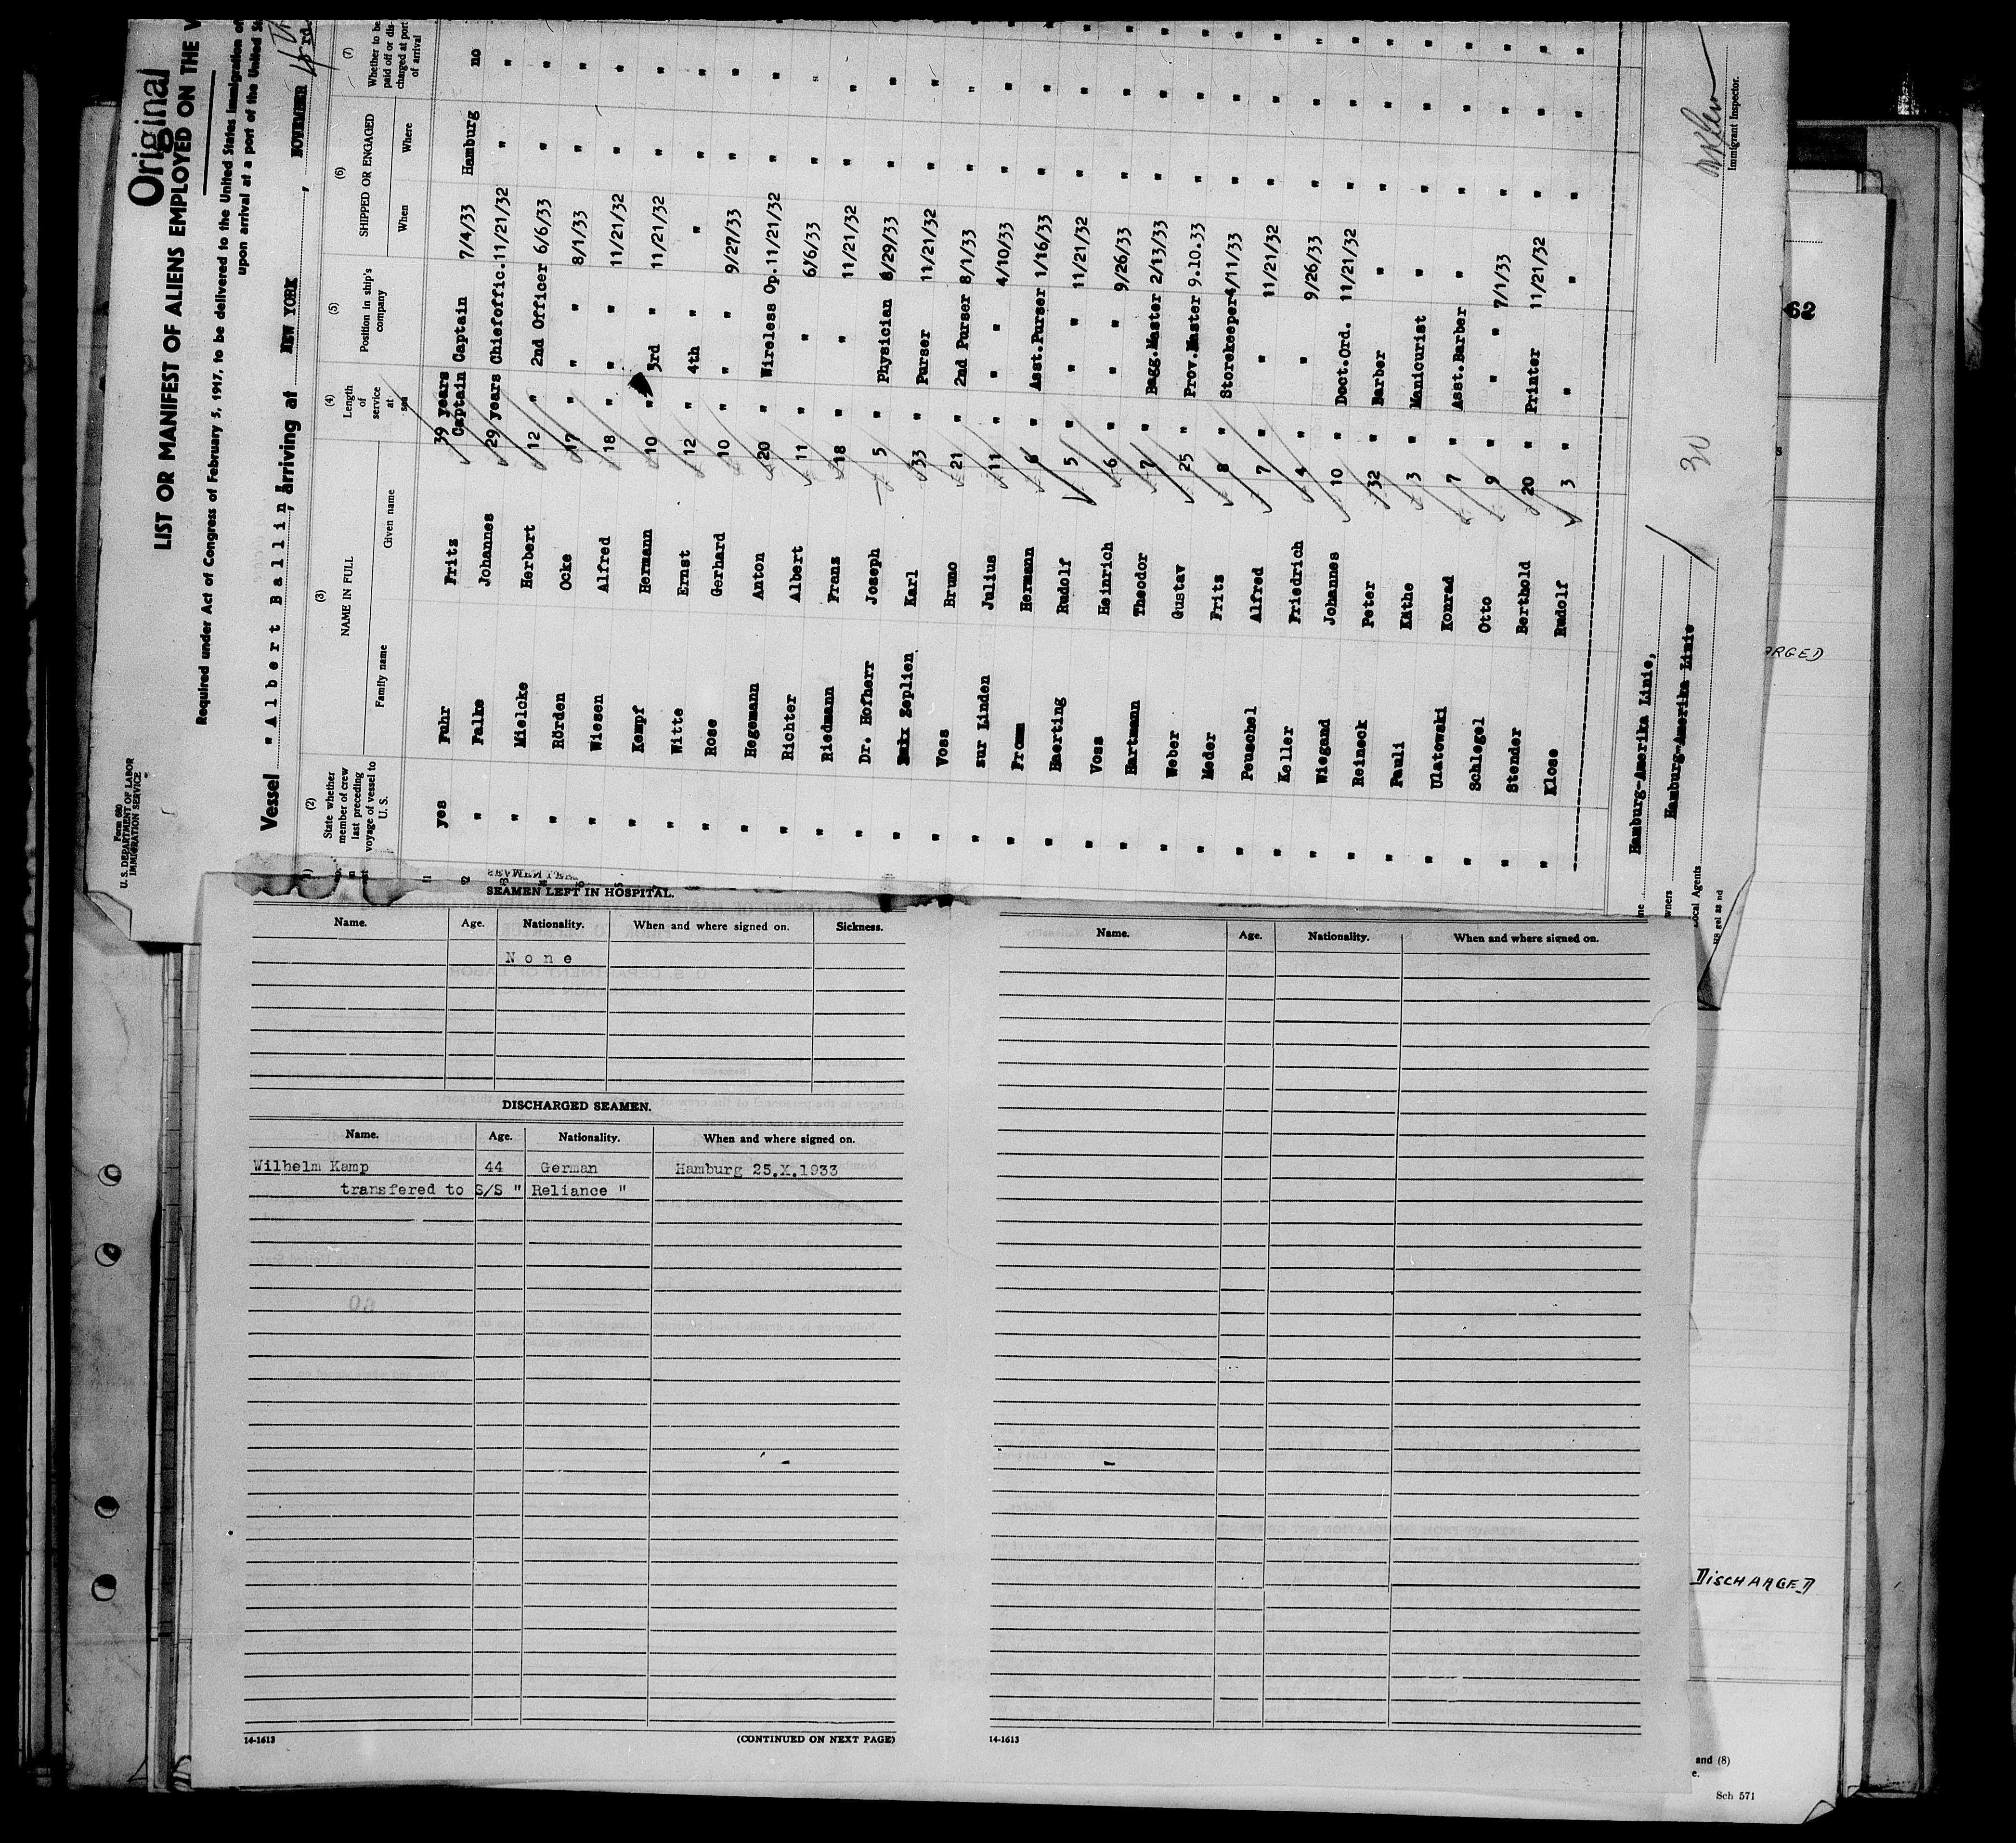 Form 680
U. S. DEPARTMENT OF LABOR
IMMIGRATION SERVICE
Original
LIST OR MANIFEST OF ALIENS EMPLOYED ON THE
Required under Act of Congress of February 5, 1917, to be delivered to the United States immigration
upon arrival at a port of the United
Vessel "Albert Ballin", arriving at NEW YORK, NOVEMBER 4th
(2) State whether member of crew last preceding voyage of vessel to U. S.
(3) NAME IN FULL
Family name Given name
(4) Length of service at sea
(5) Position in ship's company
(6) SHIPPED OR ENGAGED
When Where
(7) Whether to be paid off or discharged at port of arrival
1 yes Fuhr Fritz 39 years Captain Captain 7/4/33 Hamburg no
2 " Falke Johannes 29 years Chiefoffic. 11/21/32 " "
3 " Mielcke Herbert 12 " 2nd Officer 6/6/33 " "
4 " Rörden Ocke 17 " " 8/1/33 " "
5 " Wiesen Alfred 18 " " 11/21/32 " "
" Kempf Hermann 10 " 3rd " 11/21/32 " "
" Witte Ernst 12 " 4th " " " "
" Rose Gerhard 10 " " 9/27/33 " "
" Hegemann Anton 20 " Wireless Op. 11/21/32 " "
" Richter Albert 11 " " 6/6/33 " "
" Riedmann Franz 18 " " 11/21/32 " "
" Dr. Hofherr Joseph 5 " Physician 8/29/33 " "
" Zeplien Karl 33 " Purser 11/21/32 " "
" Voss Bruno 21 " 2nd Purser 8/1/33 " "
" zur Linden Julius 11 " " 4/10/33 " "
" Fromm Hermann 6 " Asst.Purser 1/16/33 " "
" Haerting Rudolf 5 " " 11/21/32 " "
" Voss Heinrich 6 " " 9/26/33 " "
" Hartmann Theodor 7 " Bagg.Master 2/13/33 " "
" Weber Gustav 25 " Prov.Master 9.10.33 " "
" Meder Fritz 8 " Storekeeper 4/11/33 " "
" Peuschel Alfred 7 " " 11/21/32 " "
" Keller Friedrich 4 " " 9/26/33 " "
" Wiegand Johannes 10 " Doct.Ord. 11/21/32 " "
" Reineck Peter 32 " Barber " " "
" Pauli Käthe 3 " Manicurist " " "
" Ulatowski Konrad 7 " Asst.Barber " " "
" Schlegel Otto 9 " " 7/1/33 " "
" Stender Berthold 20 " Printer 11/21/32 " "
" Klose Rudolf 3 " " " " "
Hamburg-Amerika Linie,
Hamburg-Amerika Linie
Local Agents
30
Immigrant Inspector.
SEAMEN LEFT IN HOSPITAL.
Name. Age. Nationality. When and where signed on. Sickness.
None
DISCHARGED SEAMEN.
Name. Age. Nationality. When and where signed on.
Wilhelm Kamp 44 German Hamburg 25.X.1933
transfered to S/S " Reliance "
14-1613
(CONTINUED ON NEXT PAGE)
Name. Age. Nationality. When and where signed on.
14-1613
62
ARGED
DISCHARGED
and (8)
Sch 571